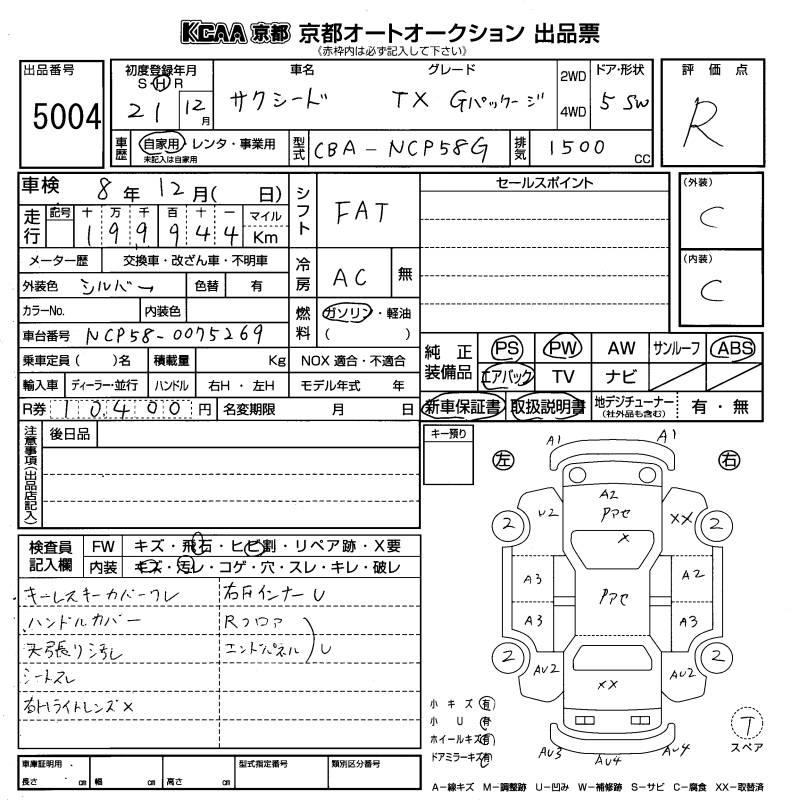 KCAA 京都 京都オートオークション 出品票
《赤枠内は必ず記入して下さい》
出品番号
5004
初度登録年月
S・H・R
21 12月
車名
サクシード
グレード
TX Gパッケージ
2WD
4WD
ドア・形状
5 SW
評価点
R
車歴
自家用・レンタ・事業用
未記入は自家用
型式
CBA-NCP58G
排気
1500 CC
車検
8年12月( 日)
走行
記号 十 万 千 百 十 一 マイル
1 9 9 9 4 4 Km
シフト
FAT
セールスポイント
(外装)
C
(内装)
C
メーター歴 交換車・改ざん車・不明車
冷房
AC 無
外装色 シルバー 色替 有
カラーNo. 内装色
燃料
ガソリン・軽油
( )
車台番号 NCP58-0075269
乗車定員( )名 積載量 Kg NOX適合・不適合
輸入車 ディーラー・並行 ハンドル 右H・左H モデル年式 年
R券 10400円 名変期限 月 日
純正装備品
PS PW AW サンルーフ ABS
エアバック TV ナビ
新車保証書 取扱説明書 地デジチューナー(社外品も含む) 有・無
注意事項(出品店記入)
後日品
キー預り
検査員記入欄
FW キズ・飛石・ヒビ割・リペア跡・X要
内装 キズ・汚レ・コゲ・穴・スレ・キレ・破レ
キーレスキーカバーワレ
ハンドルカバー
天張り汚れ
シートスレ
右Hライトレンズ X
右Fインナー U
Rフロア
エンドパネル U
左 右
A1 A1
A2
アアセ
U2 XX
X
2 2
A3 A2
アアセ
A3 A3
2 2
AU2 AU2
XX
AU3 AU4 AU4
小キズ 有
小U 有
ホイールキズ 有
ドアミラーキズ 有
T
スペア
車庫証明用
長さ cm 幅 cm 高さ cm
型式指定番号
類別区分番号
A-線キズ M-調整跡 U-凹み W-補修跡 S-サビ C-腐食 XX-取替済